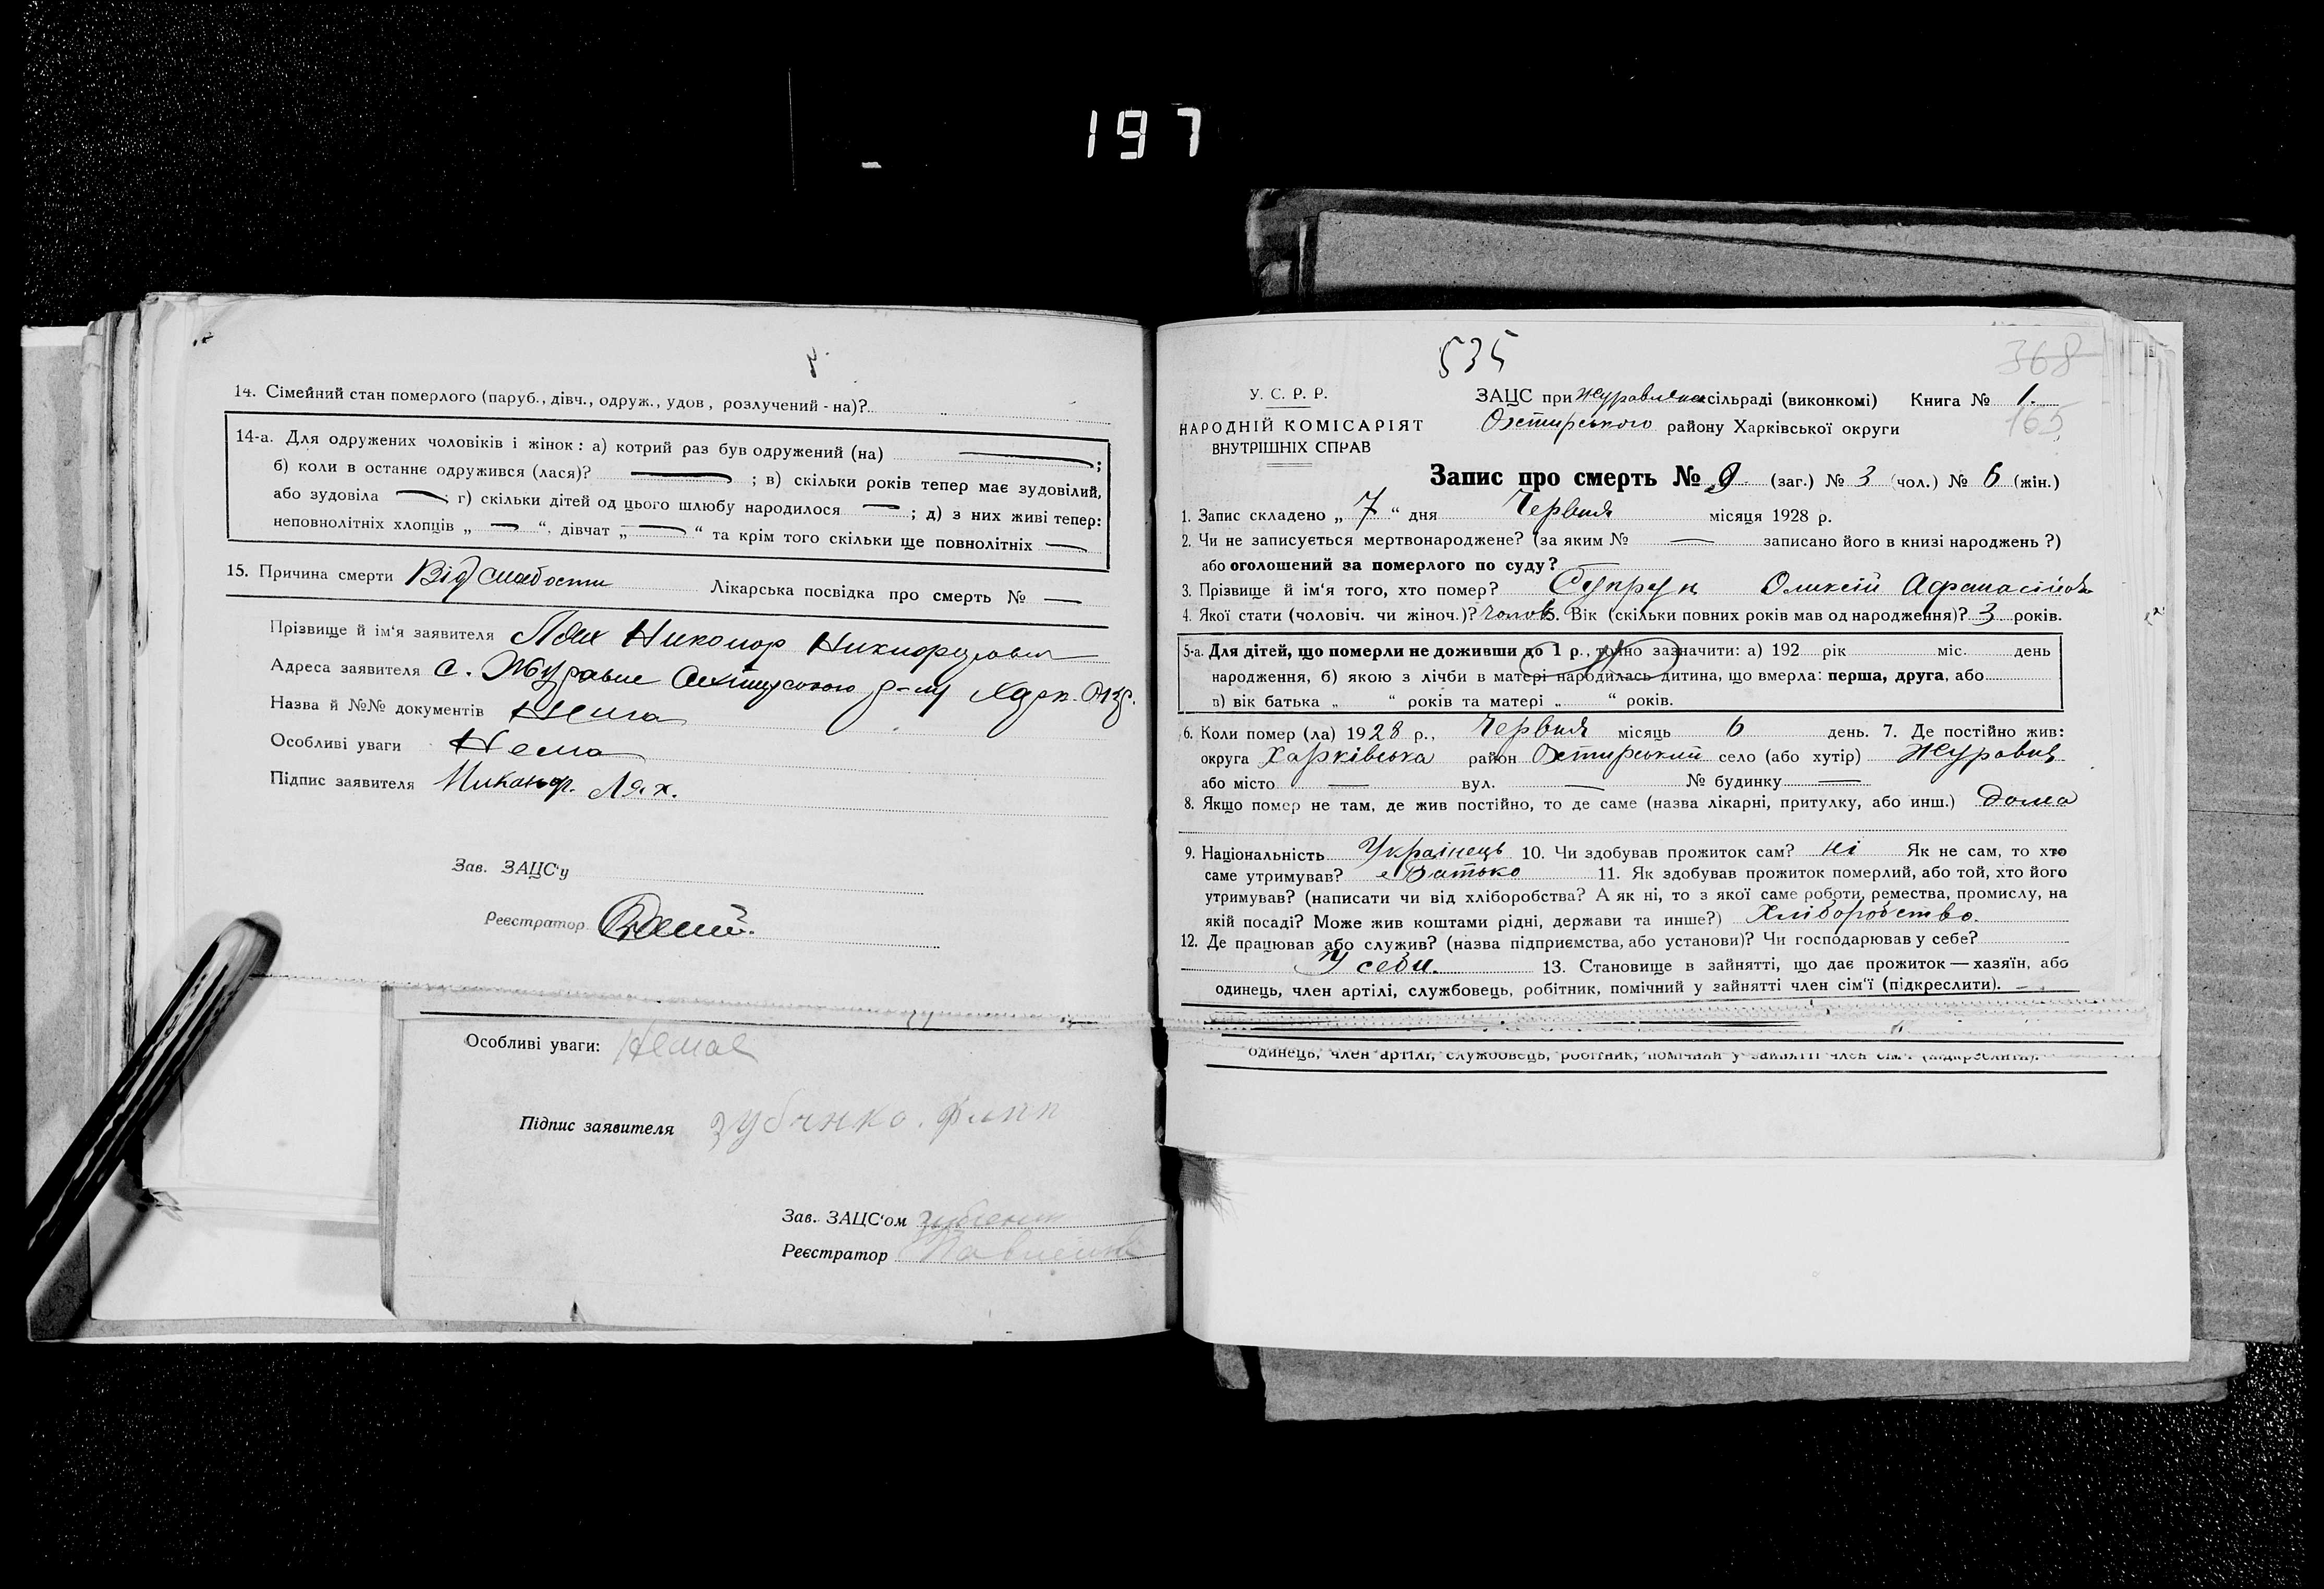 197
14. Сімейний стан померлого (паруб., дівч., одруж., удов, розлучений - на)?
14-а. Для одружених чоловіків і жінок: а) котрий раз був одружений (на) — ;
б) коли в останнє одружився (лася)? — ; в) скільки років тепер має зудовілий,
або зудовіла — ; г) скільки дітей од цього шлюбу народилося — ; д) з них живі тепер:
неповнолітніх хлопців „ — “, дівчат „ — “ та крім того скільки ще повнолітніх —
15. Причина смерти Від слабости Лікарська посвідка про смерть № —
Прізвище й ім'я заявителя Лях Никонор
Адреса заявителя с. Журавне
Назва й №№ документів Нема
Особливі уваги Нема
Підпис заявителя Никанор. Лях.
Зав. ЗАЦС'у
Реєстратор
Особливі уваги: Немає
Підпис заявителя
Зав. ЗАЦС'ом
Реєстратор
535
368
165
У. С. Р. Р.
НАРОДНІЙ КОМІСАРІЯТ
ВНУТРІШНІХ СПРАВ
ЗАЦС при сільраді (виконкомі) Книга № 1.
Охтирського району Харківської округи
Запис про смерть № 9 (заг.) № 3 (чол.) № 6 (жін.)
1. Запис складено „ 7 “ дня Червня місяця 1928 р.
2. Чи не записується мертвонароджене? (за яким № — записано його в книзі народжень?)
або оголошений за померлого по суду? —
3. Прізвище й ім'я того, хто помер? Супрун Олексій
4. Якої стати (чоловіч. чи жіноч.)? чолов. Вік (скільки повних років мав од народження)? 3 років.
5-а. Для дітей, що померли не доживши до 1 р., точно зазначити: а) 192 рік міс. день
народження, б) якою з лічби в матері народилась дитина, що вмерла: перша, друга, або
в) вік батька „ “ років та матері „ “ років.
6. Коли помер (ла) 1928 р., Червня місяць 6 день. 7. Де постійно жив:
округа Харківська район Охтирський село (або хутір) Журавне
або місто — вул. — № будинку —
8. Якщо помер не там, де жив постійно, то де саме (назва лікарні, притулку, або инш.) дома
9. Національність Українець 10. Чи здобував прожиток сам? ні Як не сам, то хто
саме утримував? Батько 11. Як здобував прожиток померлий, або той, хто його
утримував? (написати чи від хліборобства? А як ні, то з якої саме роботи, ремества, промислу, на
якій посаді? Може жив коштами рідні, держави та инше?) Хліборобство.
12. Де працював або служив? (назва підприємства, або установи)? Чи господарював у себе?
У себе. 13. Становище в зайнятті, що дає прожиток — хазяїн, або
одинець, член артілі, службовець, робітник, помічний у зайнятті член сім'ї (підкреслити). —
одинець, член артілі, службовець, робітник, помічний у зайнятті член сім'ї (підкреслити).